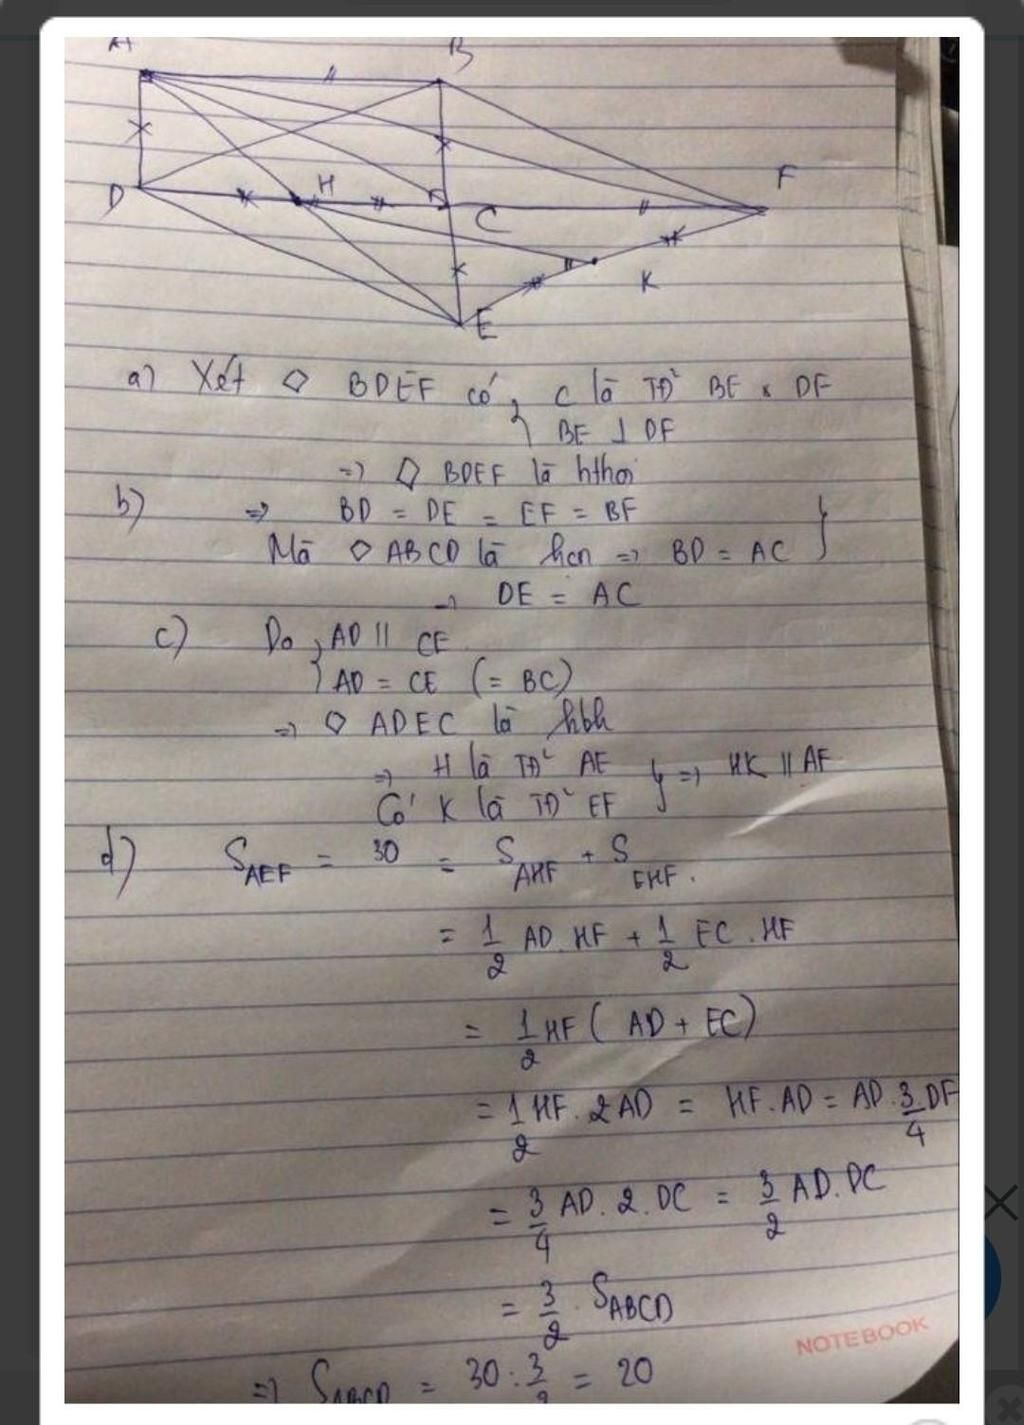 A B
D H C F
K
E
a) Xét ◇ BDEF có { C là TĐ² BE x DF
BE ⊥ DF
=> ◇ BDEF là hthoi
b) => BD = DE = EF = BF
Mà ◇ ABCD là hcn => BD = AC }
=> DE = AC
c) Do { AD || CE
AD = CE (= BC)
=> ◇ ADEC là hbh
=> H là TĐ² AE } => HK || AF
Có K là TĐ² EF
d) S_AEF = 30 = S_AHF + S_EHF.
= 1/2 AD. HF + 1/2 EC. HF
= 1/2 HF ( AD + EC)
= 1/2 HF. 2AD = HF. AD = AD. 3/4 DF
= 3/4 AD. 2. DC = 3/2 AD. DC
= 3/2 . S_ABCD
NOTEBOOK
=> S_ABCD = 30 : 3/2 = 20